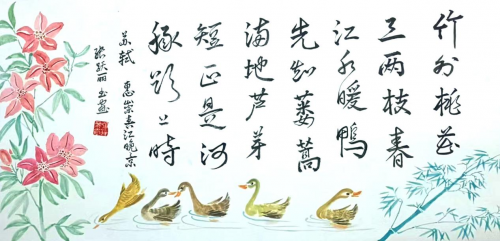 竹外桃花
三两枝春
江水暖鸭
先知蒌蒿
满地芦芽
短正是河
豚欲上时
苏轼 惠崇春江晚京
跃丽书画